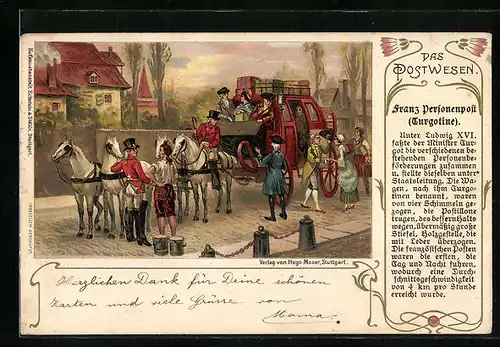 DAS
POSTWESEN.
Franz Personenpost
(Turgotine).
Unter Ludwig XVI.
faßte der Minister Tur-
got die verschiedenen be-
stehenden Personenbe-
förderungen zusammen
u. stellte dieselben unter
Staatsleitung. Die Wa-
gen, nach ihm Turgo-
tinen benannt, waren
von vier Schimmeln ge-
zogen, die Postillone
trugen, des bessern Halts
wegen, übermäßig große
Stiefel, Holzgestelle, die
mit Leder überzogen.
Die französischen Posten
waren die ersten, die
Tag und Nacht fuhren,
wodurch eine Durch-
schnittsgeschwindigkeit
von 4 km pro Stunde
erreicht wurde.
Verlag von Hugo Moser, Stuttgart.
Herzlichen Dank für Deine schönen
Karten und viele Grüsse von
Mama.